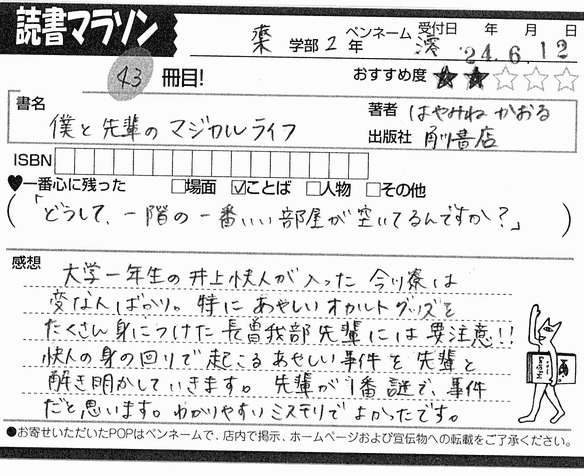 読書マラソン
薬 学部 2 年 ペンネーム 澪 受付日 '24年 6月 12日
43 冊目!
おすすめ度 ★★☆☆☆
書名
僕と先輩のマジカルライフ
著者 はやみね かおる
出版社 角川書店
ISBN
♥一番心に残った □場面 ☑ことば □人物 □その他
(「どうして、一階の一番いい部屋が空いてるんですか?」)
感想
大学一年生の井上快人が入った今川寮は
変な人ばかり。特にあやしいオカルトグッズを
たくさん身につけた長曽我部先輩には要注意!!
快人の身の回りで起こるあやしい事件を先輩と
解き明かしていきます。先輩が1番謎で、事件
だと思います。わかりやすいミステリでよかったです。
●お寄せいただいたPOPはペンネームで、店内で掲示、ホームページおよび宣伝物への転載をご了承ください。